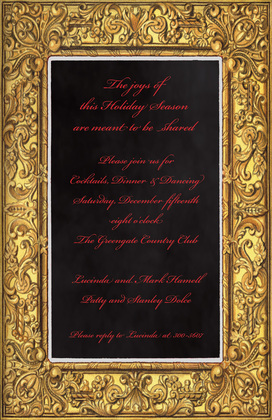 The joys of
this Holiday Season
are meant to be shared
Please join us for
Cocktails, Dinner & Dancing
Saturday, December fifteenth
eight o'clock
The Greengate Country Club
Lucinda and Mark Hamell
Patty and Stanley Dolce
Please reply to Lucinda at 200-3601